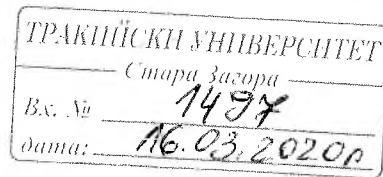 ТРАКИЙСКИ УНИВЕРСИТЕТ
Стара Загора
Вх. № 1497
дата: 16.03.2020г